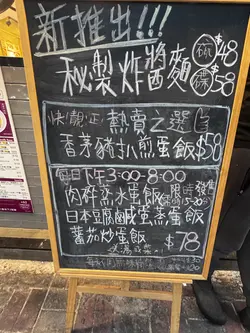 新推出!!!
秘製炸醬麵 碗 $48
碟 $58
快靚正! 熱賣之選
香茅豬扒煎蛋飯 $58
每日下午3:00-8:00
肉碎蒸水蛋飯 限時發售
日本豆腐鹹蛋蒸蛋飯
蕃茄炒蛋飯 $78